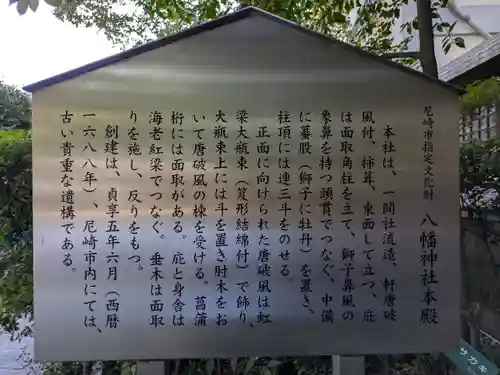 尼崎市指定文化財 八幡神社本殿
本社は、一間社流造、軒唐破
風付、柿葺、東面して立つ。庇
は面取角柱を立て、獅子鼻風の
象鼻を持つ頭貫でつなぐ。中備
に蟇股（獅子に牡丹）を置き、
柱頂には連三斗をのせる。
正面に向けられた唐破風は虹
梁大瓶束（笈形結綿付）で飾り、
大瓶束上には斗を置き肘木をお
いて唐破風の棟を受ける。菖蒲
桁には面取がある。庇と身舎は
海老虹梁でつなぐ。垂木は面取
りを施し、反りをもつ。
創建は、貞享五年六月（西暦
一六八八年）、尼崎市内にては、
古い貴重な遺構である。
サカキ